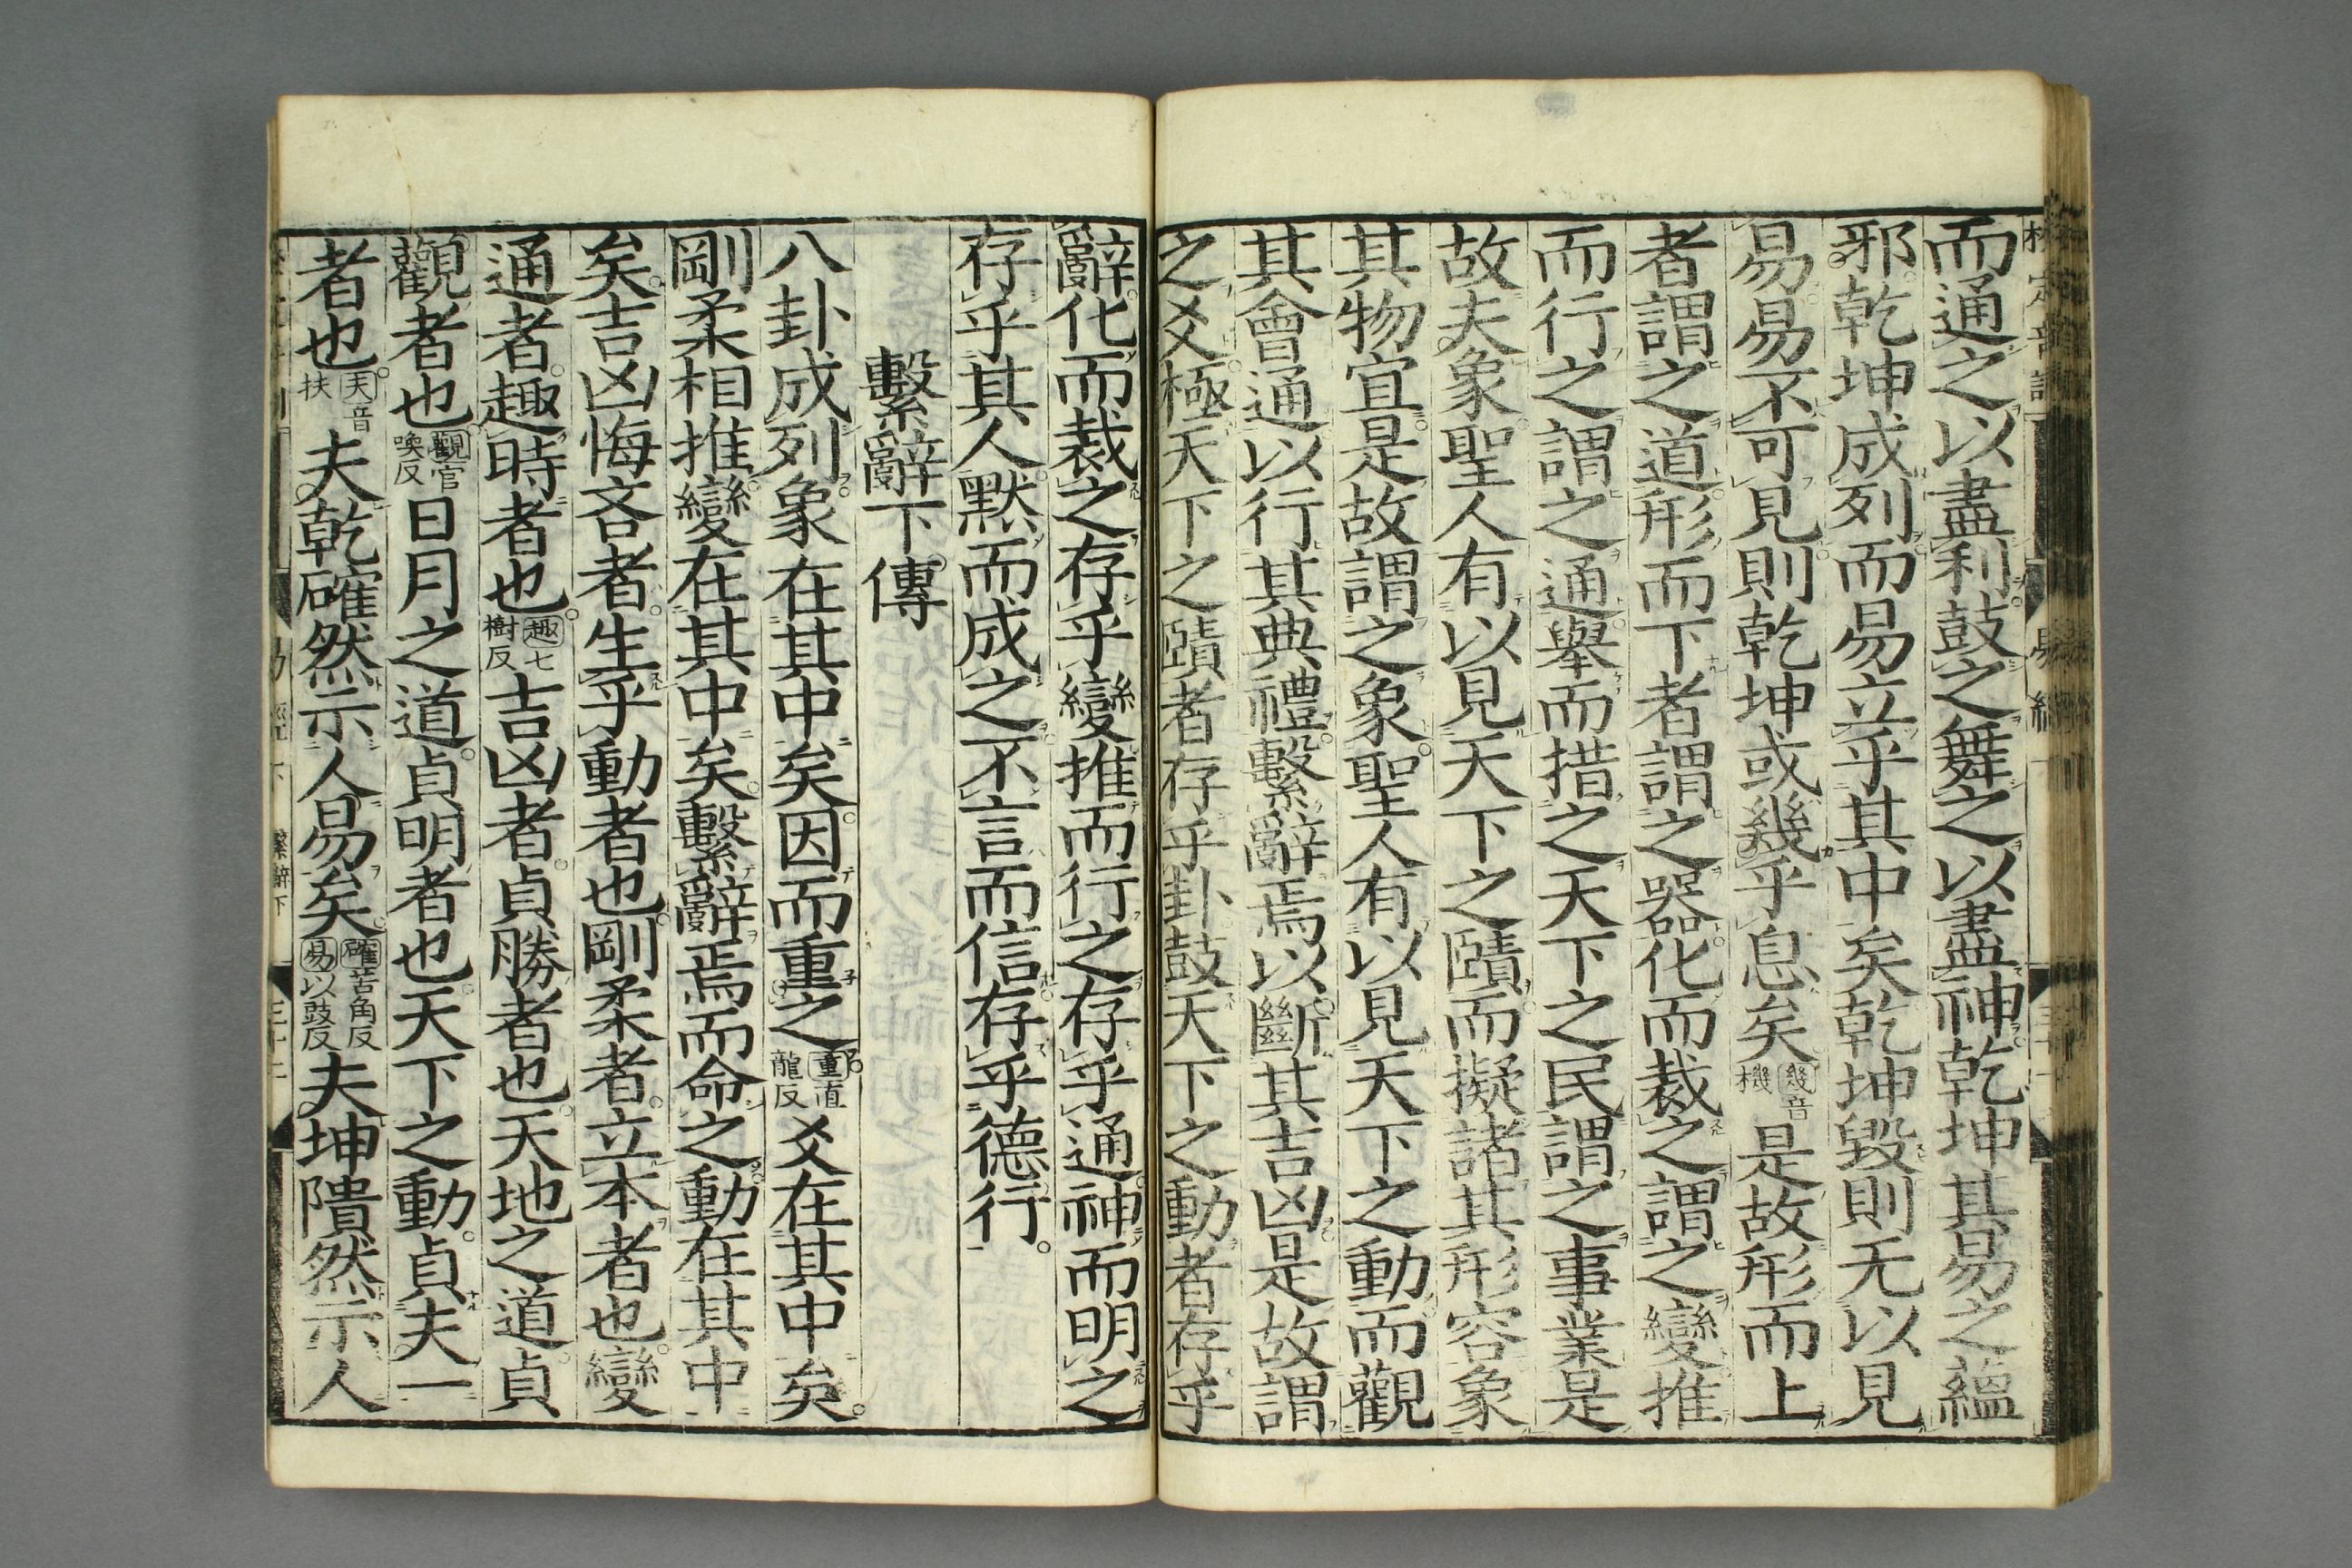 而通之以盡利鼓之舞之以盡神乾坤其易之蘊
邪乾坤成列而易立乎其中矣乾坤毀則无以見
易易不可見則乾坤或幾乎息矣幾音機是故形而上
者謂之道形而下者謂之器化而裁之謂之變推
而行之謂之通舉而措之天下之民謂之事業是
故夫象聖人有以見天下之賾而擬諸其形容象
其物宜是故謂之象聖人有以見天下之動而觀
其會通以行其典禮繫辭焉以斷其吉凶是故謂
之爻極天下之賾者存乎卦鼓天下之動者存乎
辭化而裁之存乎變推而行之存乎通神而明之
存乎其人默而成之不言而信存乎德行
繫辭下傳
八卦成列象在其中矣因而重之重直龍反爻在其中矣
剛柔相推變在其中矣繫辭焉而命之動在其中
矣吉凶悔吝者生乎動者也剛柔者立本者也變
通者趣時者也趣七樹反吉凶者貞勝者也天地之道貞
觀者也觀官喚反日月之道貞明者也天下之動貞夫一
者也夫音扶夫乾確然示人易矣確苦角反易以豉反夫坤隤然示人